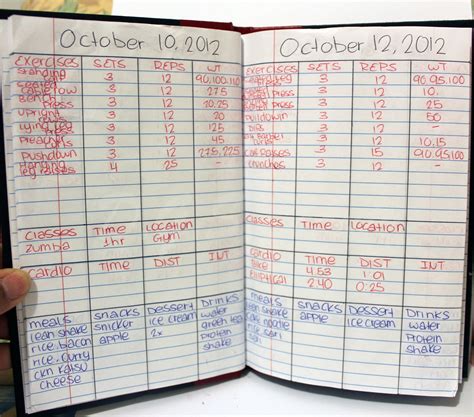 October 10, 2012
Exercises SETS REPS WT
Standing 3 12 90,100,110
cable row 3 12 275
Bench Press 3 12 10.25
Upright row 3 12 20
Lying leg 3 12 125
Preacher curls 3 12 45
Pushdown 3 12 275,225
Hanging leg raises 4 25 -
Classes Time Location
Zumba 1hr Gym
Cardio Time DIST INT
meals snacks Dessert Drinks
lean shake snicker ice cream water
rice, bacon apple 2x green tea
rice, curry protein
ckn katsu shake
cheese
October 12, 2012
Exercises SETS REPS WT
3 12 90,95,100
3 12 10.
Press 3 12 25
Pulldown 3 12 50
Dips 3 12 -
Barbell curls 3 12 10.15
Calf Raises 3 15 90,95,100
Crunches 3 12 -
Classes Time Location
Cardio Time DIST INT
Bike 4.53 1.01
elliptical 2.40 0.25
meals snacks Dessert Drinks
lean shake apple ice cream water
protein
shake